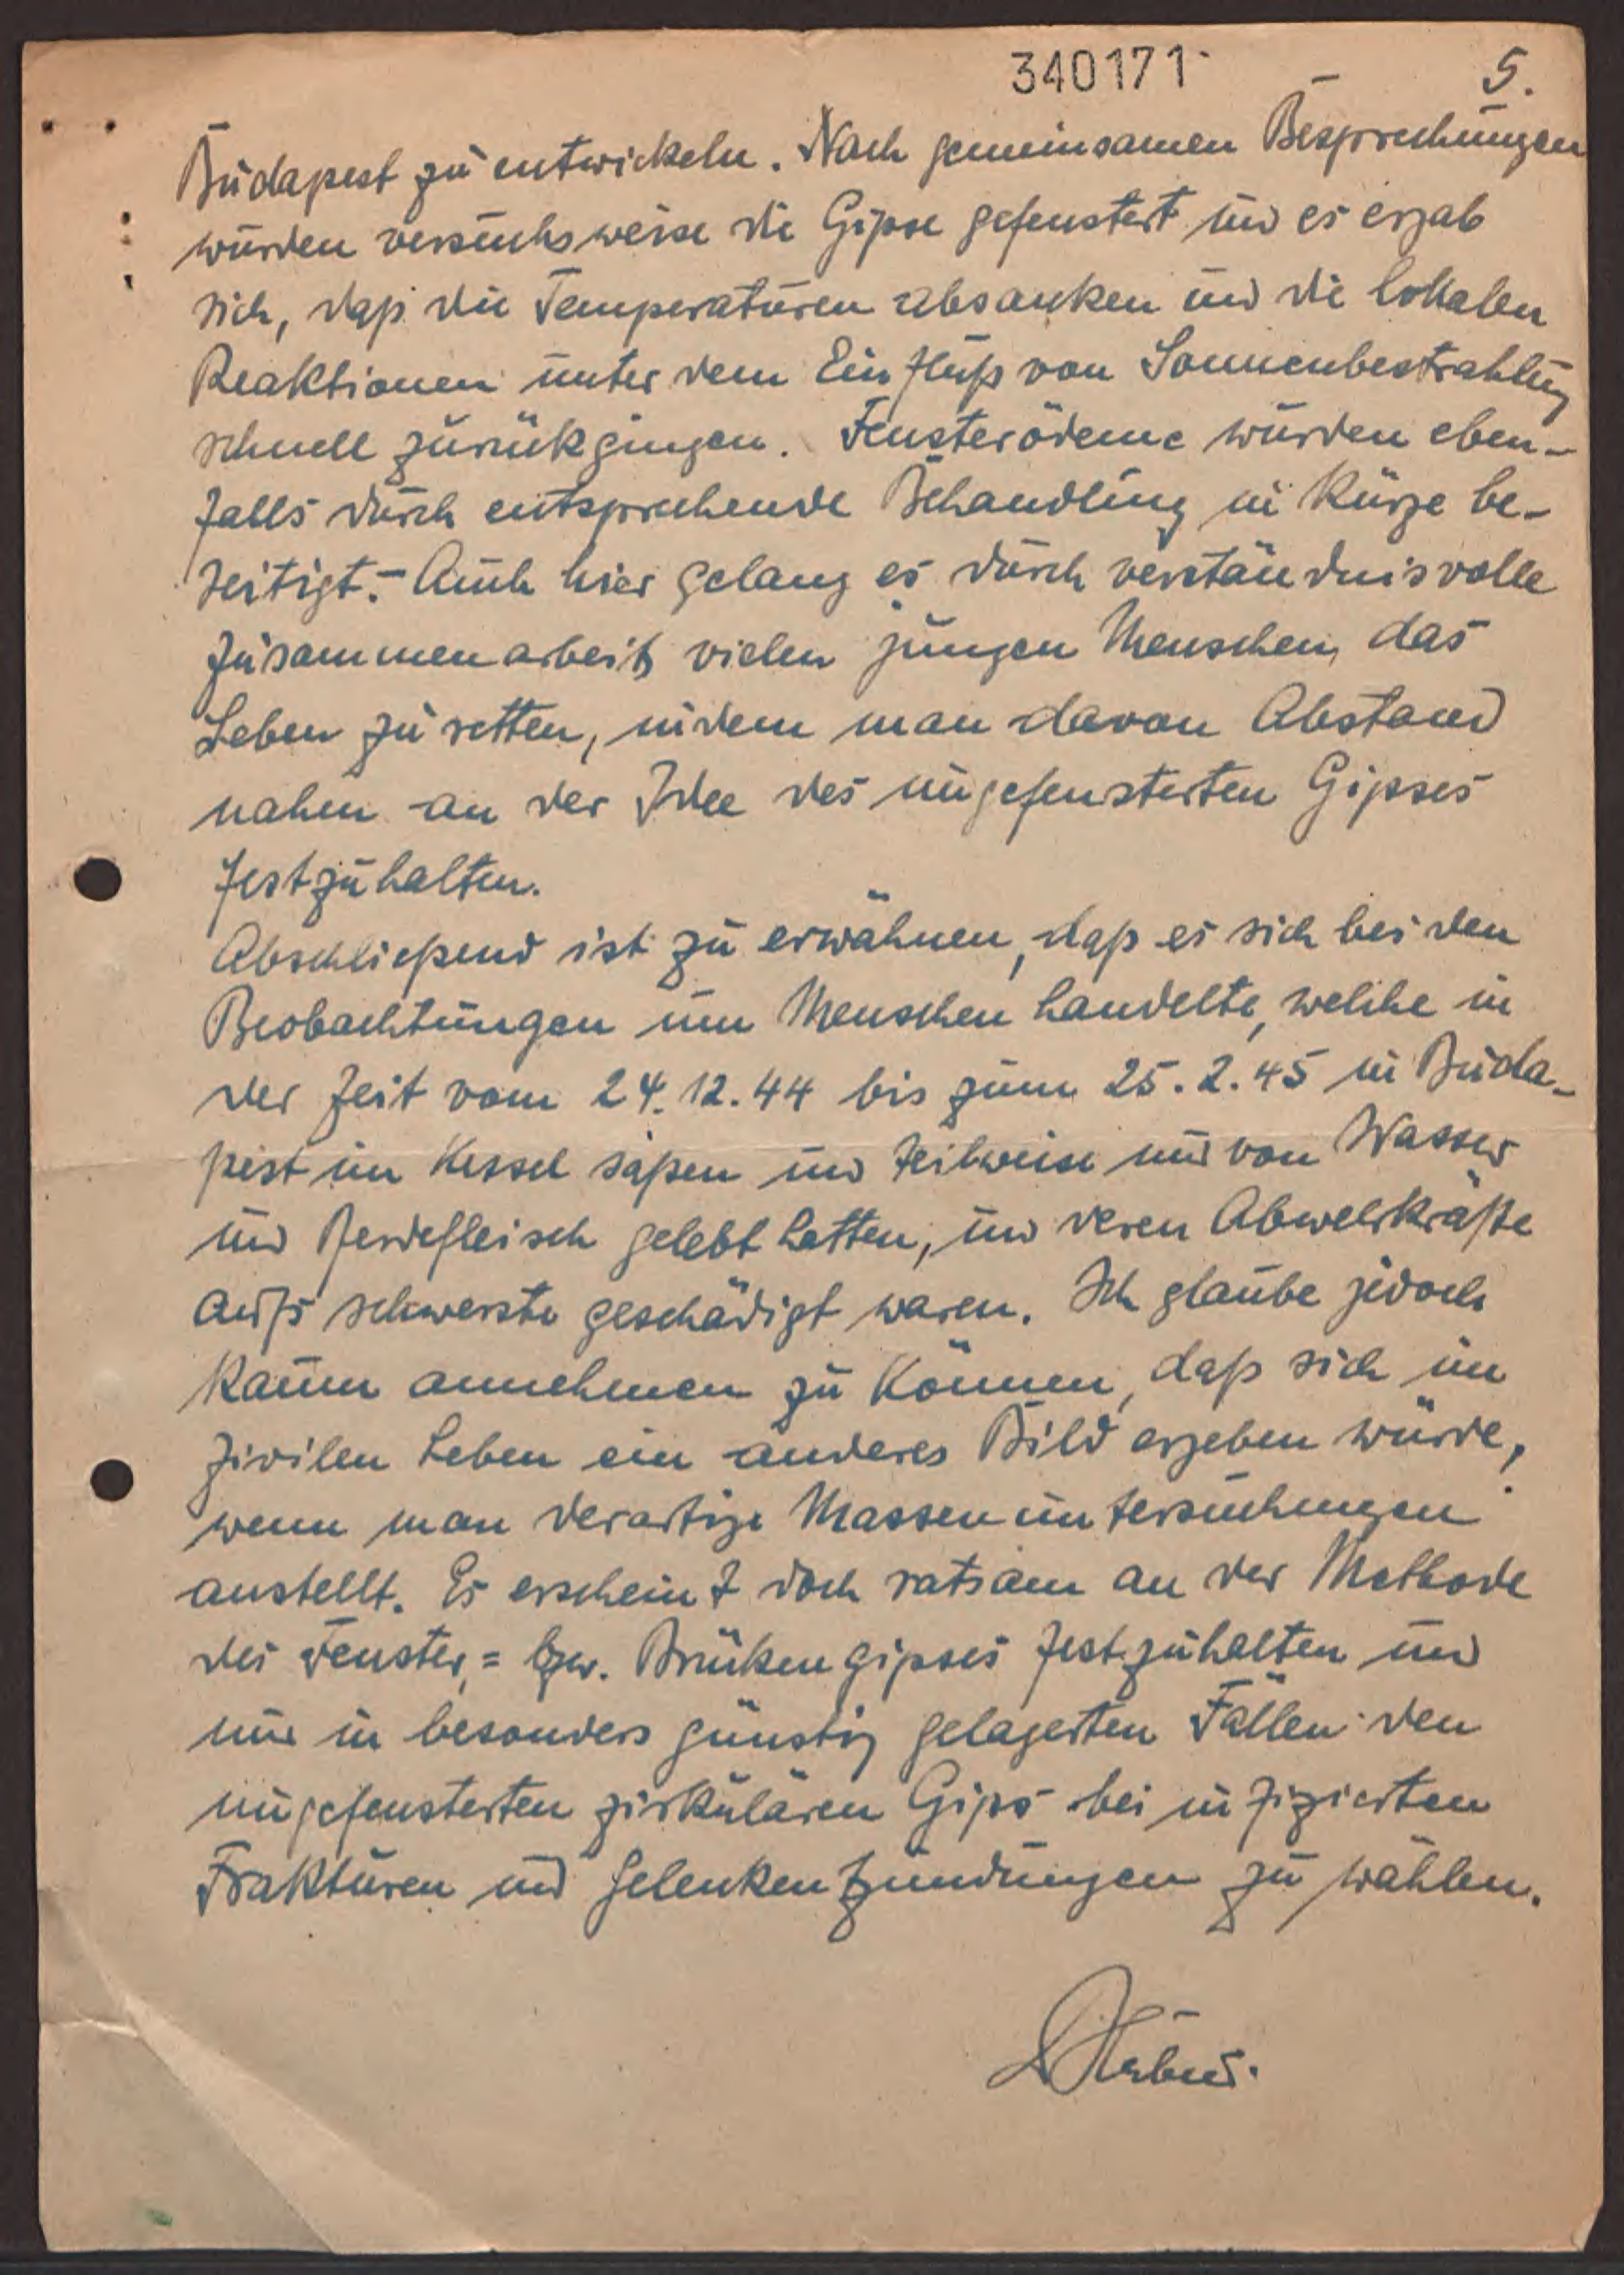 340171
5.
Budapest zu entwickeln. Nach gemeinsamen Besprechungen
wurden versuchsweise die Gipse gefenstert und es ergab
sich, daß die Temperaturen absanken und die lokalen
Reaktionen unter dem Einfluß von Sonnenbestrahlung
schnell zurückgingen. Fensterödeme wurden eben-
falls durch entsprechende Behandlung in Kürze be-
seitigt.- Auch hier gelang es durch verständnisvolle
Zusammenarbeit vielen jungen Menschen das
Leben zu retten, indem man davon Abstand
nahm an der Idee des ungefensterten Gipses
festzuhalten.
Abschließend ist zu erwähnen, daß es sich bei den
Beobachtungen um Menschen handelte, welche in
der Zeit vom 24.12.44 bis zum 25.2.45 in Buda-
pest im Kessel saßen und teilweise nur von Wasser
und Perdefleisch gelebt hatten, und deren Abwehrkräfte
aufs schwerste geschädigt waren. Ich glaube jedoch
kaum annehmen zu können, daß sich im
zivilen Leben ein anderes Bild ergeben würde,
wenn man derartige Massenuntersuchungen
anstellt. Es erscheint doch ratsam an der Methode
des Fenster,= bzw. Brückengipses festzuhalten und
nur in besonders günstig gelagerten Fällen den
ungefensterten zirkulären Gips bei infizierten
Frakturen und Gelenkentzündungen zu wählen.